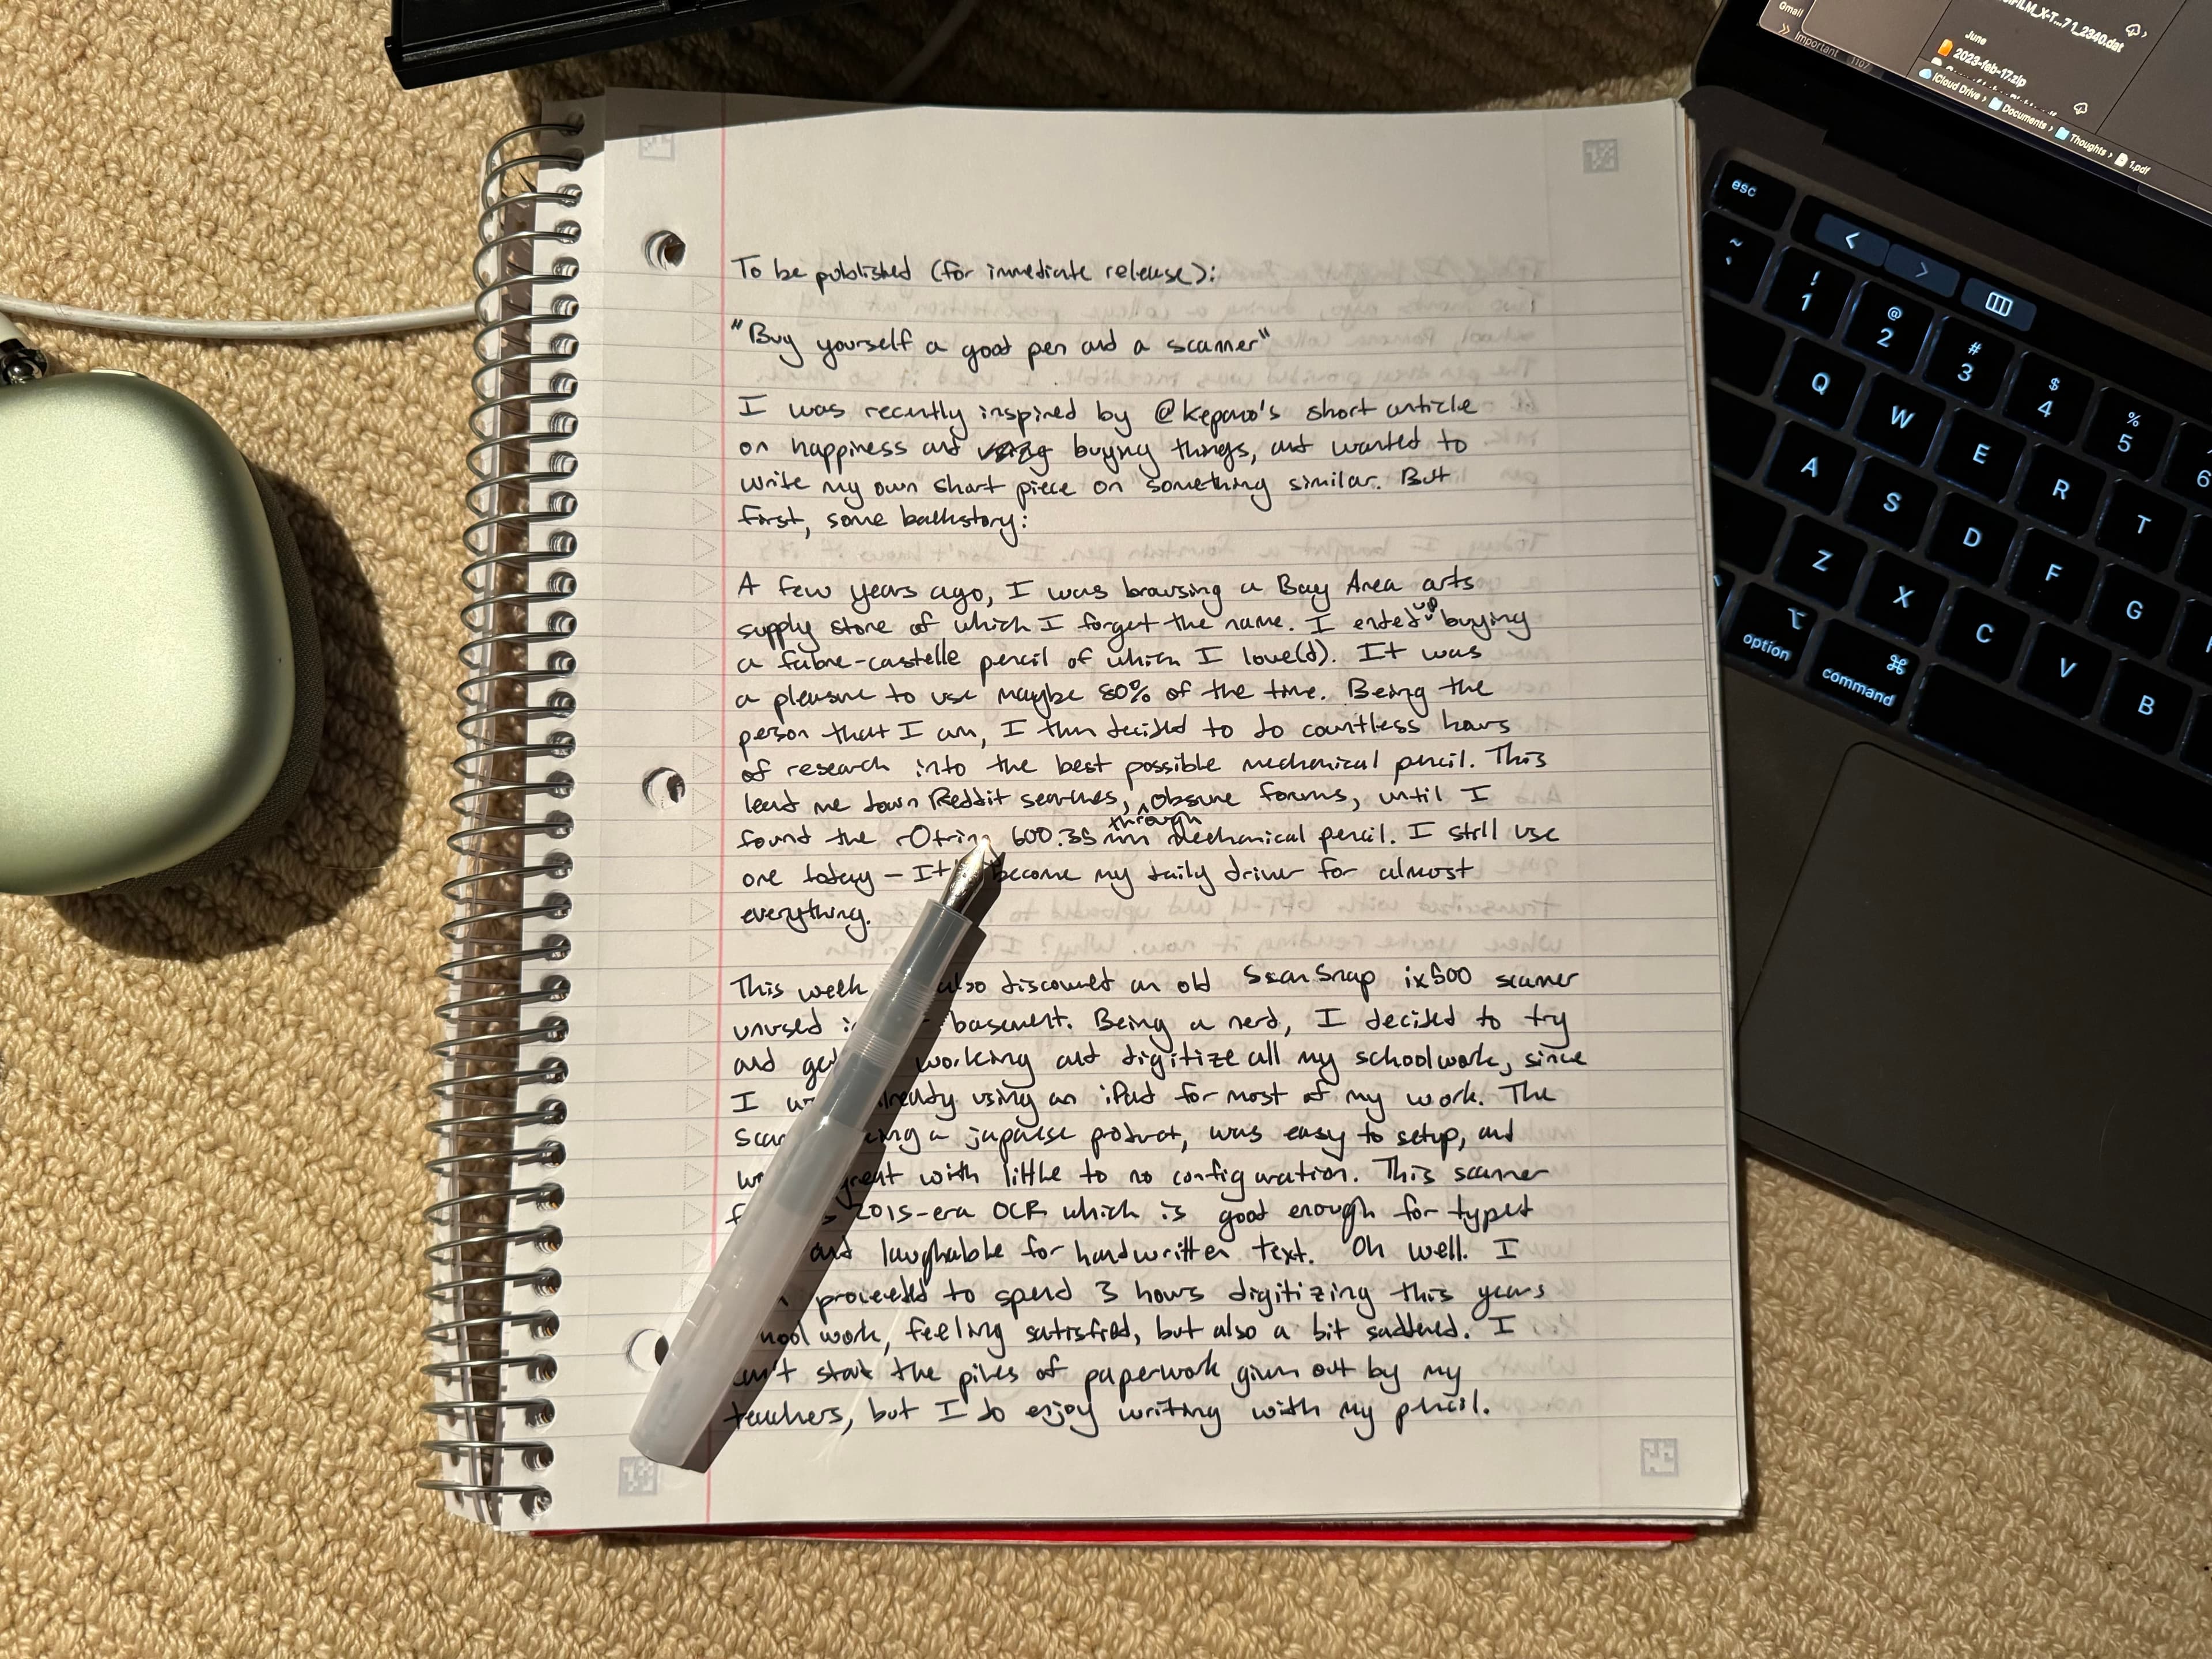 To be published (for immediate release):
"Buy yourself a good pen and a scanner"
I was recently inspired by @kepano's short article
on happiness and buying things, and wanted to
write my own short piece on something similar. But
first, some backstory:
A few years ago, I was browsing a Bay Area arts
supply store of which I forget the name. I ended up buying
a fabre-castelle pencil of which I love(d). It was
a pleasure to use maybe 80% of the time. Being the
person that I am, I then decided to do countless hours
of research into the best possible mechanical pencil. This
lead me down Reddit searches, through obsure forums, until I
found the rOtring 600 .35 mm mechanical pencil. I still use
one today - It become my daily driver for almost
everything.
This week also discovered an old ScanSnap ix500 scanner
unused basement. Being a nerd, I decided to try
and working and digitize all my schoolwork, since
I already using an iPad for most of my work. The
a japanese product, was easy to setup, and
great with little to no configuration. This scanner
2015-era OCR which is good enough for typed
and laughable for handwritten text. Oh well. I
proceeded to spend 3 hours digitizing this years
work, feeling satisfied, but also a bit saddened. I
stand the piles of paperwork given out by my
teachers, but I do enjoy writing with my pencil.
Gmail
Important
1107
June
2023-feb-17.zip
iCloud Drive › Documents › Thoughts › 1.pdf
esc
< >
~ ! 1 @ 2 # 3 $ 4 % 5 6
Q W E R T
A S D F G
Z X C V B
option command